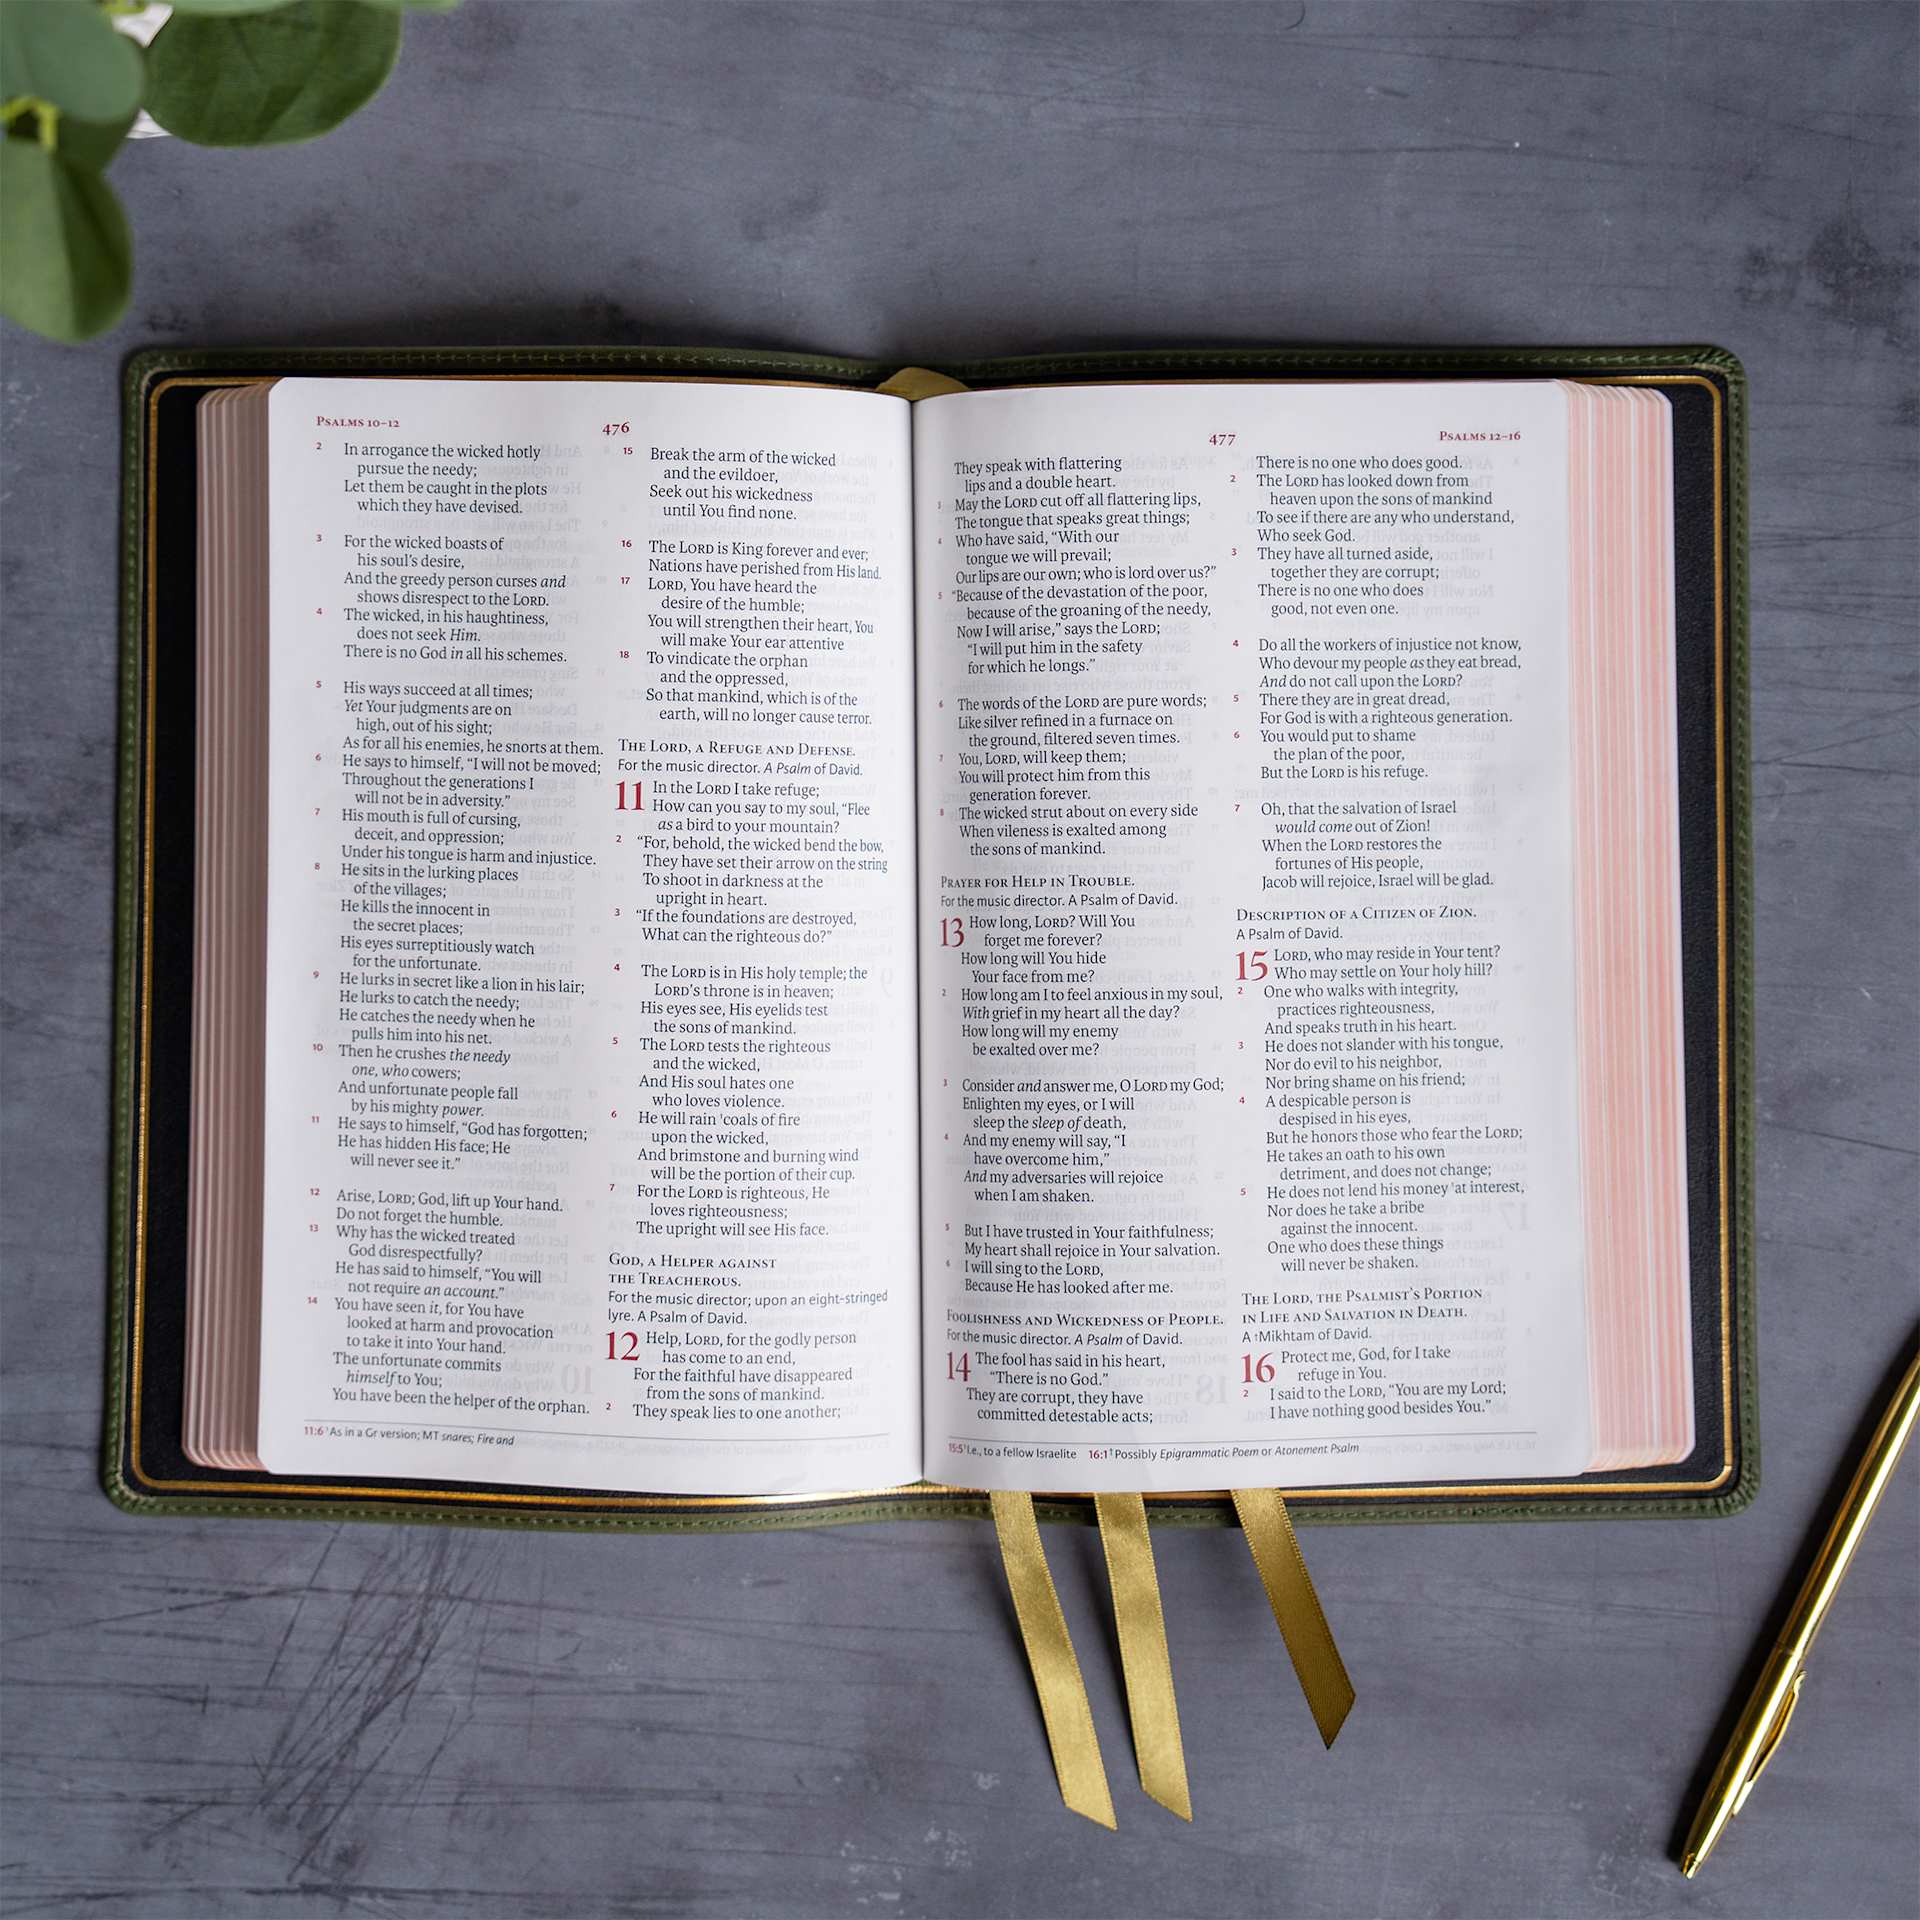 PSALMS 10–12
476
2 In arrogance the wicked hotly
pursue the needy;
Let them be caught in the plots
which they have devised.
3 For the wicked boasts of
his soul's desire,
And the greedy person curses and
shows disrespect to the LORD.
4 The wicked, in his haughtiness,
does not seek Him.
There is no God in all his schemes.
5 His ways succeed at all times;
Yet Your judgments are on
high, out of his sight;
As for all his enemies, he snorts at them.
6 He says to himself, “I will not be moved;
Throughout the generations I
will not be in adversity.”
7 His mouth is full of cursing,
deceit, and oppression;
Under his tongue is harm and injustice.
8 He sits in the lurking places
of the villages;
He kills the innocent in
the secret places;
His eyes surreptitiously watch
for the unfortunate.
9 He lurks in secret like a lion in his lair;
He lurks to catch the needy;
He catches the needy when he
pulls him into his net.
10 Then he crushes the needy
one, who cowers;
And unfortunate people fall
by his mighty power.
11 He says to himself, “God has forgotten;
He has hidden His face; He
will never see it.”
12 Arise, LORD; God, lift up Your hand.
Do not forget the humble.
13 Why has the wicked treated
God disrespectfully?
He has said to himself, “You will
not require an account.”
14 You have seen it, for You have
looked at harm and provocation
to take it into Your hand.
The unfortunate commits
himself to You;
You have been the helper of the orphan.
15 Break the arm of the wicked
and the evildoer,
Seek out his wickedness
until You find none.
16 The LORD is King forever and ever;
Nations have perished from His land.
17 LORD, You have heard the
desire of the humble;
You will strengthen their heart, You
will make Your ear attentive
18 To vindicate the orphan
and the oppressed,
So that mankind, which is of the
earth, will no longer cause terror.
THE LORD, A REFUGE AND DEFENSE.
For the music director. A Psalm of David.
11 In the LORD I take refuge;
How can you say to my soul, “Flee
as a bird to your mountain?
2 “For, behold, the wicked bend the bow,
They have set their arrow on the string
To shoot in darkness at the
upright in heart.
3 “If the foundations are destroyed,
What can the righteous do?”
4 The LORD is in His holy temple; the
LORD'S throne is in heaven;
His eyes see, His eyelids test
the sons of mankind.
5 The LORD tests the righteous
and the wicked,
And His soul hates one
who loves violence.
6 He will rain ¹coals of fire
upon the wicked,
And brimstone and burning wind
will be the portion of their cup.
7 For the LORD is righteous, He
loves righteousness;
The upright will see His face.
GOD, A HELPER AGAINST
THE TREACHEROUS.
For the music director; upon an eight-stringed
lyre. A Psalm of David.
12 Help, LORD, for the godly person
has come to an end,
For the faithful have disappeared
from the sons of mankind.
2 They speak lies to one another;
11:6 ¹As in a Gr version; MT snares; Fire and
477
PSALMS 12–16
They speak with flattering
lips and a double heart.
3 May the LORD cut off all flattering lips,
The tongue that speaks great things;
4 Who have said, “With our
tongue we will prevail;
Our lips are our own; who is lord over us?”
5 “Because of the devastation of the poor,
because of the groaning of the needy,
Now I will arise,” says the LORD;
“I will put him in the safety
for which he longs.”
6 The words of the LORD are pure words;
Like silver refined in a furnace on
the ground, filtered seven times.
7 You, LORD, will keep them;
You will protect him from this
generation forever.
8 The wicked strut about on every side
When vileness is exalted among
the sons of mankind.
PRAYER FOR HELP IN TROUBLE.
For the music director. A Psalm of David.
13 How long, LORD? Will You
forget me forever?
How long will You hide
Your face from me?
2 How long am I to feel anxious in my soul,
With grief in my heart all the day?
How long will my enemy
be exalted over me?
3 Consider and answer me, O LORD my God;
Enlighten my eyes, or I will
sleep the sleep of death,
4 And my enemy will say, “I
have overcome him,”
And my adversaries will rejoice
when I am shaken.
5 But I have trusted in Your faithfulness;
My heart shall rejoice in Your salvation.
6 I will sing to the LORD,
Because He has looked after me.
FOOLISHNESS AND WICKEDNESS OF PEOPLE.
For the music director. A Psalm of David.
14 The fool has said in his heart,
“There is no God.”
They are corrupt, they have
committed detestable acts;
There is no one who does good.
2 The LORD has looked down from
heaven upon the sons of mankind
To see if there are any who understand,
Who seek God.
3 They have all turned aside,
together they are corrupt;
There is no one who does
good, not even one.
4 Do all the workers of injustice not know,
Who devour my people as they eat bread,
And do not call upon the LORD?
5 There they are in great dread,
For God is with a righteous generation.
6 You would put to shame
the plan of the poor,
But the LORD is his refuge.
7 Oh, that the salvation of Israel
would come out of Zion!
When the LORD restores the
fortunes of His people,
Jacob will rejoice, Israel will be glad.
DESCRIPTION OF A CITIZEN OF ZION.
A Psalm of David.
15 LORD, who may reside in Your tent?
Who may settle on Your holy hill?
2 One who walks with integrity,
practices righteousness,
And speaks truth in his heart.
3 He does not slander with his tongue,
Nor do evil to his neighbor,
Nor bring shame on his friend;
4 A despicable person is
despised in his eyes,
But he honors those who fear the LORD;
He takes an oath to his own
detriment, and does not change;
5 He does not lend his money ¹at interest,
Nor does he take a bribe
against the innocent.
One who does these things
will never be shaken.
THE LORD, THE PSALMIST'S PORTION
IN LIFE AND SALVATION IN DEATH.
A †Mikhtam of David.
16 Protect me, God, for I take
refuge in You.
2 I said to the LORD, “You are my Lord;
I have nothing good besides You.”
15:5 ¹I.e., to a fellow Israelite 16:1 †Possibly Epigrammatic Poem or Atonement Psalm